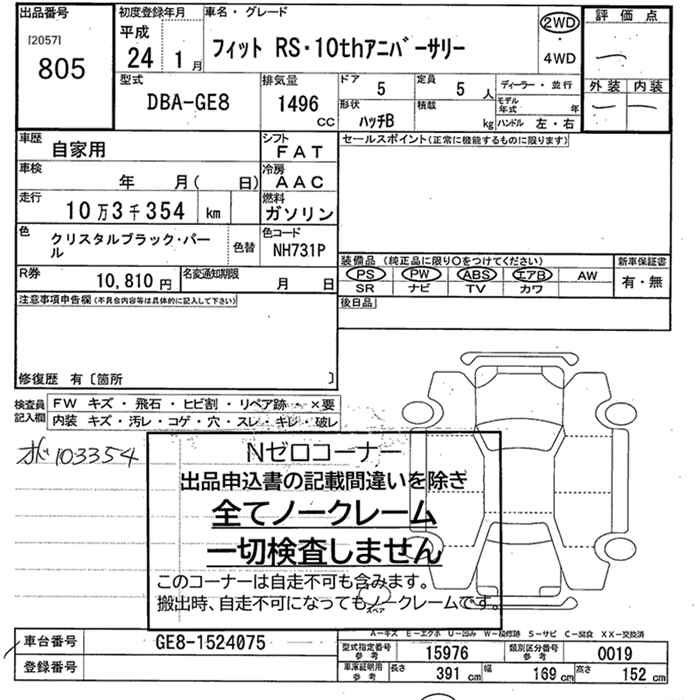 出品番号
[2057]
805
初度登録年月
平成
24 1月
車名・グレード
フィット RS・10thアニバーサリー
2WD
・
4WD
評価点
一
外装 内装
一 一
型式
DBA-GE8
排気量
1496
CC
ドア
5
定員
5人
形状
ハッチB
積載
kg
ディーラー・並行
モデル年式 年
ハンドル 左・右
車歴
自家用
シフト
FAT
セールスポイント(正常に機能するものに限ります)
車検
年 月( 日)
冷房
AAC
走行
10万3千354 km
燃料
ガソリン
色
クリスタルブラック・パール
色替
色コード
NH731P
装備品 (純正品に限り○をつけてください)
新車保証書
PS PW ABS エアB AW
有・無
SR ナビ TV カワ
R券
10,810円
名変通知期限
月 日
後日品
注意事項申告欄(不具合内容等は具体的に記入して下さい)
修復歴 有〔箇所 〕
検査員記入欄
FW キズ・飛石・ヒビ割・リペア跡・×要
内装 キズ・汚レ・コゲ・穴・スレ・キレ・破レ
103354
Nゼロコーナー
出品申込書の記載間違いを除き
全てノークレーム
一切検査しません
このコーナーは自走不可も含みます。
搬出時、自走不可になってもノークレームです。
スペア
A-キズ E-エクボ U-凹み W-補修跡 S-サビ C-腐食 XX-交換済
車台番号
GE8-1524075
登録番号
型式指定番号
参考
15976
類別区分番号
参考
0019
車庫証明用
参考
長さ 391 cm 幅 169 cm 高さ 152 cm